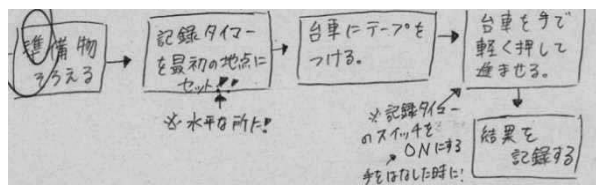 準備物
そろえる
記録タイマー
を最初の地点に
セット!!
※水平な所に!
台車にテープを
つける。
台車を手で
軽く押して
進ませる。
※記録タイマー
のスイッチを
ONにする
手をはなした時に!
結果を
記録する